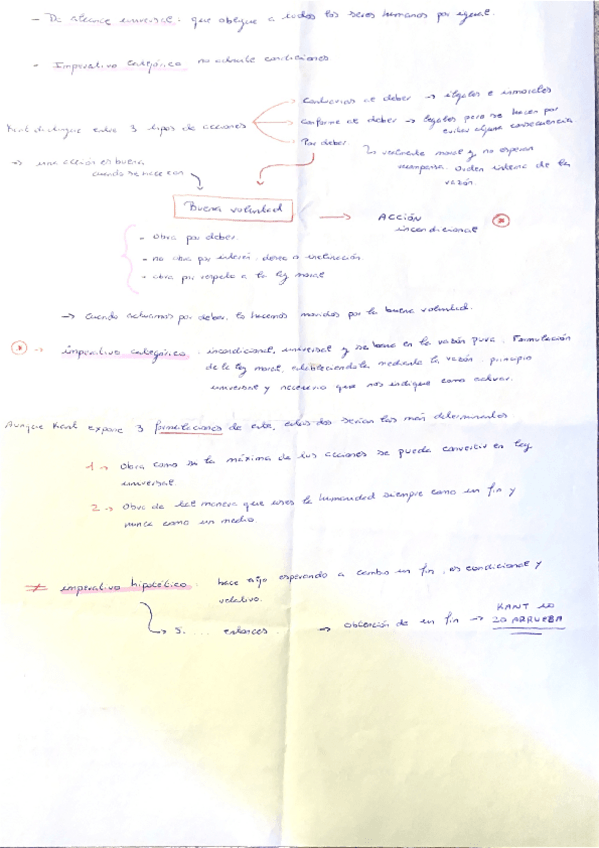 - De alcance universal: que obligue a todos los seres humanos por igual.
- Imperativo categórico no admite condiciones
Contrarios al deber → ilegales e inmorales
Kant distingue entre 3 tipos de acciones
Conforme al deber → legales pero se hacen por
evitar alguna consecuencia
Por deber
↳ realmente moral y no esperan
recompensa. Orden interno de la
razón.
→ una acción es buena
cuando se hace con
Buena voluntad
→ ACCIÓN
incondicional
- obra por deber
- no obra por interés, deseo o inclinación
- obra por respeto a la ley moral
→ Cuando actuamos por deber, lo hacemos movidos por la buena voluntad.
→ imperativo categórico: incondicional, universal y se basa en la razón pura. Formulación
de la ley moral, estableciéndola mediante la razón. principio
universal y necesario que nos indique como actuar.
Aunque Kant expone 3 formulaciones de este, estas dos serían las más determinantes
1 → Obra como si la máxima de tus acciones se pueda convertir en ley
universal.
2 → Obra de tal manera que uses la humanidad siempre como un fin y
nunca como un medio.
≠ imperativo hipotético: hace algo esperando a cambio un fin, es condicional y
relativo.
Si .... entonces → obtención de un fin → KANT NO
LO APRUEBA